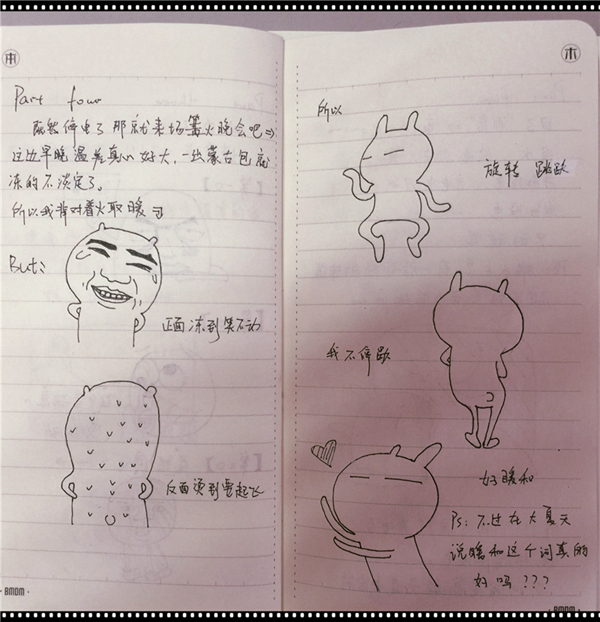 本
Part four
既然停电了 那就来场篝火晚会吧=>
这边早晚温差真心好大，一出蒙古包就
冻的不淡定了。
所以我背对着火取暖
But:
正面冻到笑不动
反面烫到要起飞
·BMOM·
本
所以
旋转 跳跃
我不停歇
好暖和
Ps: 不过在大夏天
说暖和这个词真的
好吗???
BMOM·